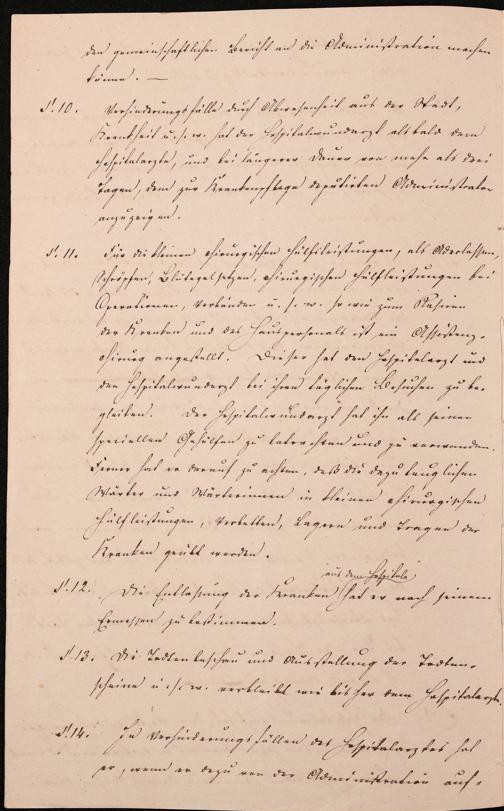 den gemeinschaftlichen Bericht an die Administration machen
könne. —
§. 10. Verhinderungsfälle durch Abwesenheit aus der Stadt,
Krankheit u. s. w. hat der Hospitalwundarzt alsbald dem
Hospitalarzte, und bei längerer Dauer von mehr als drei
Tagen, dem zur Krankenpflege deputirten Administrator
anzuzeigen.
§. 11. Für die kleinen chirurgischen Hülfsleistungen, als Aderlassen,
Schröpfen, Blutegelsetzen, chirurgischen Hülfleistungen bei
Operationen, Verbänden u. s. w. so wie zum Rasiren
der Kranken und des Hauspersonals ist ein Assistenz-
chirurg angestellt. Dieser hat den Hospitalarzt und
den Hospitalwundarzt bei ihren täglichen Besuchen zu be-
gleiten. Der Hospitalwundarzt hat ihn als seinen
speciellen Gehülfen zu betrachten und zu verwenden.
Ferner hat er darauf zu achten, daß die dazu tauglichen
Wärter und Wärterinnen in kleinen chirurgischen
Hülfleistungen, Verbetten, Lagern und Tragen der
Kranken geübt werden.
aus dem Hospitale
§. 12. Die Entlassung der Kranken hat er nach seinem
Ermessen zu bestimmen.
§. 13. Die Todtenbeschau und Ausstellung der Todten-
scheine u. s. w. verbleibt wie bisher dem Hospitalarzte.
§. 14. In Verhinderungsfällen des Hospitalarztes hat
er, wenn er dazu von der Administration auf-